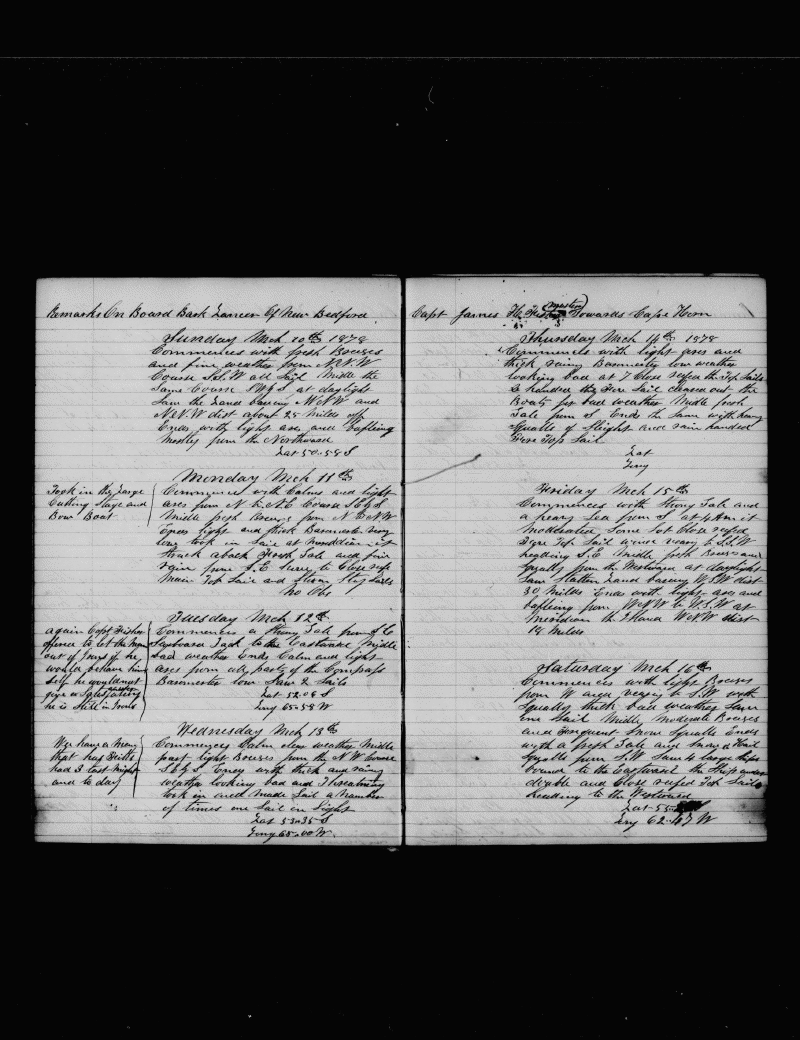 Remarks On Board Bark Lancer Of New Bedford
Sunday Mch 10th 1878
Commences with fresh Breezes
and fine weather from N.N.W
Course S.S.W all Sail Middle the
Same Course SW by S at daylight
Saw the Land bearing W.N.W and
N.N.W dist about 25 Miles off
Ends with light ares and baffling
mostly from the Northward
Lat 50-58 S
Monday Mch 11th
Took in the Large
Cutting Stage and
Bow Boat
Commences with Calms and light
ares from N to N.E Course S by S
Middle fresh Breeze from N to NW
Ends light and thick Barometer very
Low took in Sail at Meriddian it
struck aback Fresh Gale and
rain from S.E
Main Top Sail and Storm Stay Sails
No Obs
Tuesday Mch 12th
again Capt Fisher
offered to let the Man
out of Irons if he
would behave him
Self he would not
give us Satisfaction
he is Still in Irons
Commences a Strong Gale from S.E
Larboard Tack to the Eastward Middle
bad weather Ends Calm and light
ares from all parts of the Compass
Barometer low Saw 2 Sails
Lat 52.08 S
Long 65-58 W
Wednesday Mch 13th
We have a Man
that has Fitts
had 3 last Night
and to day
Commences Calm clear weather Middle
part light Breezes from the N.W Course
S by S Ends with thick and rainy
weather looking bad and Threatning
took in and Made Sail a number
of times one Sail in Sight
Lat 53-35 S
Long 65-00 W
Capt James H. Towards Cape Horn
Thursday Mch 14th 1878
Commences with light ares and
thick rainy Barometer low weather
looking bad at 7 Close reefed the Top Sails
& handed the Fore Sail cleared out the
Boats for bad weather Middle fresh
Gale from S Ends the Same with heavy
Squalls of Sleight and rain handed
Fore Top Sail
Lat
Long
Friday Mch 15th
Commences with Strong Gale and
a heavy Sea from S at 4 P.m it
Moderated Some Set Close reefed
Fore Top Sail wind veary to S.S.W
heading S.E Middle fresh Breeze and
Squally from the Westward at daylight
Saw Statten Land bearing W.S.W dist
30 Milds Ends with light ares and
bafling from W.N.W to W.S.W at
Meridian the Island W.N.W dist
18 Milds
Saturday Mch 16th
Commences with light Breezes
from W and veaying to S.W with
Squally thick bad weather Saw
one Sail Middle Moderate Breezes
and frequent Snow Squalls Ends
with a fresh Gale and Snow & Hail
Squalls from S.W Saw 4 large Ships
bound to the Eastward the Ship under
double and Close reefed Top Sails
Heading to the Westward
Lat 55
Long 62-47 W